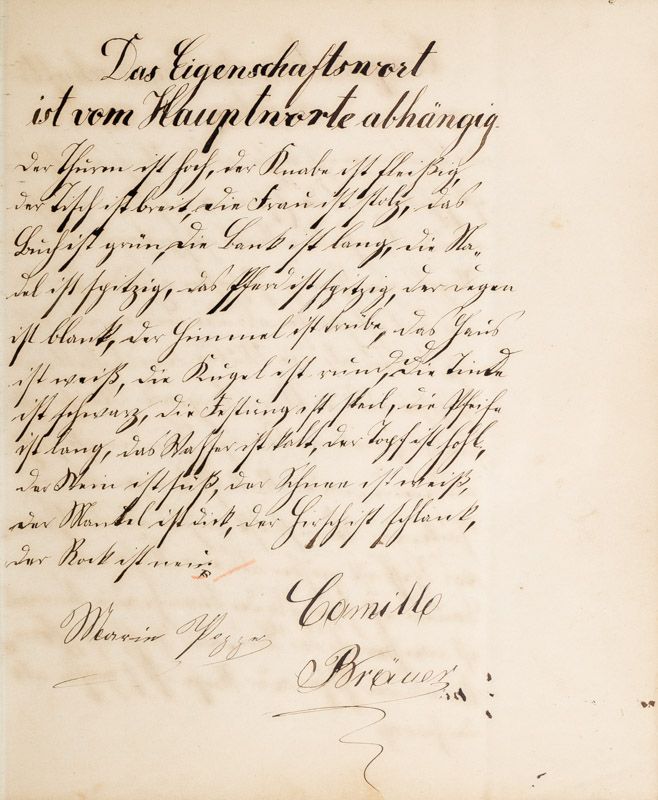 Das Eigenschaftswort
ist vom Hauptworte abhängig.
Der Thurm ist hoch, der Knabe ist fleißig,
der Tisch ist breit, die Frau ist stolz, das
Buch ist grün, die Bank ist lang, die Na„
del ist spitzig, das Pferd ist spitzig, der Degen
ist blank, der Himmel ist trübe, das Haus
ist weiß, die Kugel ist rund, die Tinte
ist schwarz, die Festung ist steil, die Pfeife
ist lang, das Wasser ist kalt, der Topf ist hohl,
der Wein ist süß, der Schnee ist weiß,
der Mantel ist dick, der Hirsch ist schlank,
der Rock ist neu.
Camillo
Marie Poppe
Bräuer